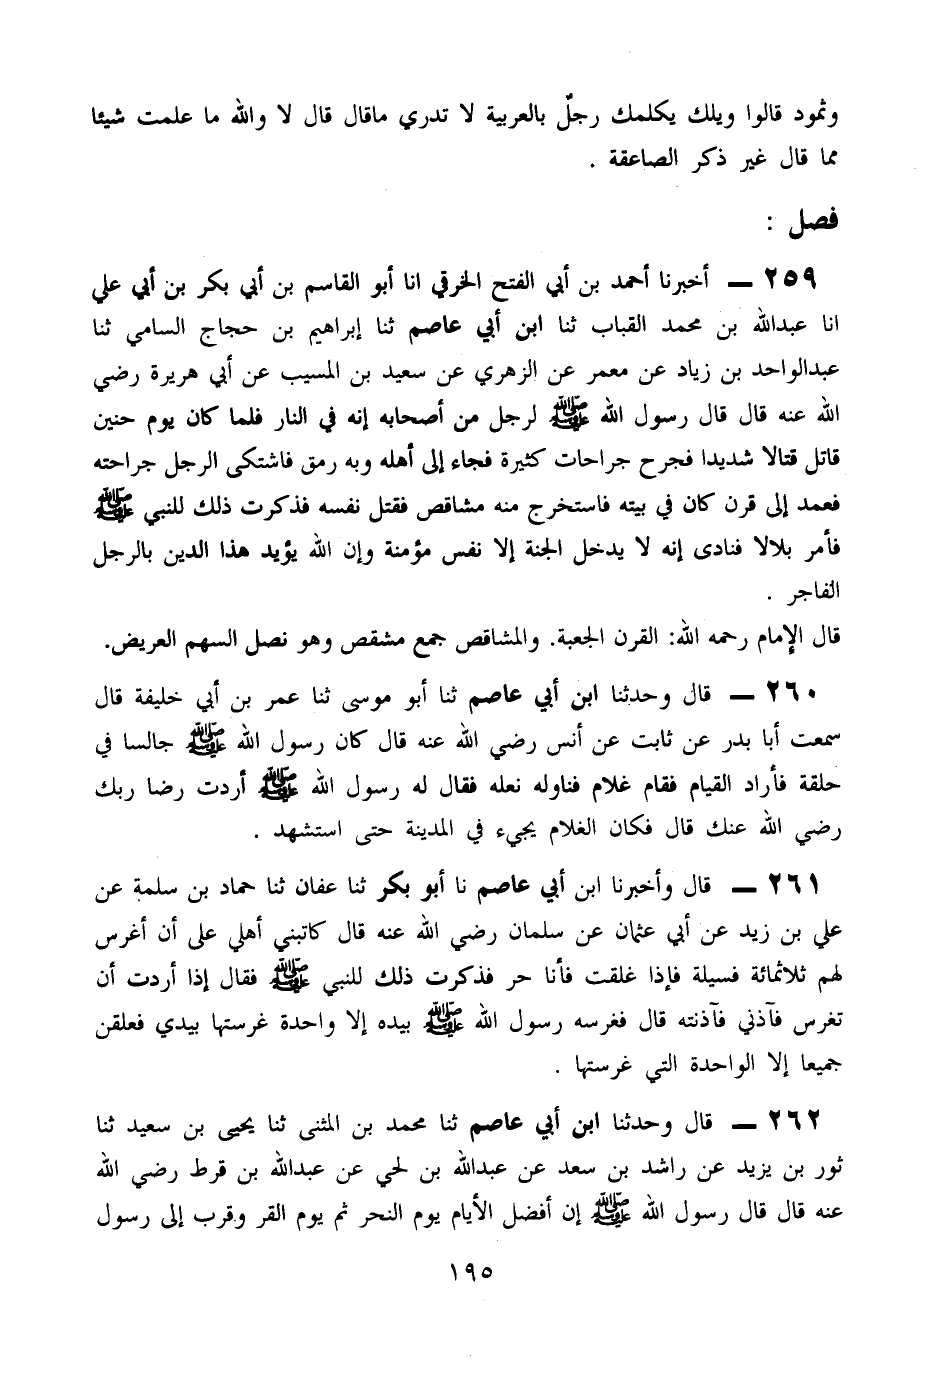 وثمود قالوا ويلك يكلمك رجلٌ بالعربية لا تدري ماقال قال لا والله ما علمت شيئا
مما قال غير ذكر الصاعقة .
فصل :
٢٥٩ — أخبرنا أحمد بن أبي الفتح الخرقي انا أبو القاسم بن أبي بكر بن أبي علي
انا عبدالله بن محمد القباب ثنا ابن أبي عاصم ثنا إبراهيم بن حجاج السامي ثنا
عبدالواحد بن زياد عن معمر عن الزهري عن سعيد بن المسيب عن أبي هريرة رضي
الله عنه قال قال رسول الله ﷺ لرجل من أصحابه إنه في النار فلما كان يوم حنين
قاتل قتالا شديدا فجرح جراحات كثيرة فجاء إلى أهله وبه رمق فاشتكى الرجل جراحته
فعمد إلى قرن كان في بيته فاستخرج منه مشاقص فقتل نفسه فذكرت ذلك للنبي ﷺ
فأمر بلالا فنادى إنه لا يدخل الجنة إلا نفس مؤمنة وإن الله يؤيد هذا الدين بالرجل
الفاجر .
قال الإمام رحمه الله: القرن الجعبة. والمشاقص جمع مشقص وهو نصل السهم العريض.
٢٦٠ — قال وحدثنا ابن أبي عاصم ثنا أبو موسى ثنا عمر بن أبي خليفة قال
سمعت أبا بدر عن ثابت عن أنس رضي الله عنه قال كان رسول الله ﷺ جالسا في
حلقة فأراد القيام فقام غلام فناوله نعله فقال له رسول الله ﷺ أردت رضا ربك
رضي الله عنك قال فكان الغلام يجيء في المدينة حتى استشهد .
٢٦١ — قال وأخبرنا ابن أبي عاصم نا أبو بكر ثنا عفان ثنا حماد بن سلمة عن
علي بن زيد عن أبي عثمان عن سلمان رضي الله عنه قال كاتبني أهلي على أن أغرس
لهم ثلاثمائة فسيلة فإذا غلقت فأنا حر فذكرت ذلك للنبي ﷺ فقال إذا أردت أن
تغرس فآذني فآذنته قال فغرسه رسول الله ﷺ بيده إلا واحدة غرستها بيدي فعلقن
جميعا إلا الواحدة التي غرستها .
٢٦٢ — قال وحدثنا ابن أبي عاصم ثنا محمد بن المثنى ثنا يحيى بن سعيد ثنا
ثور بن يزيد عن راشد بن سعد عن عبدالله بن لحي عن عبدالله بن قرط رضي الله
عنه قال قال رسول الله ﷺ إن أفضل الأيام يوم النحر ثم يوم القر وقرب إلى رسول
١٩٥